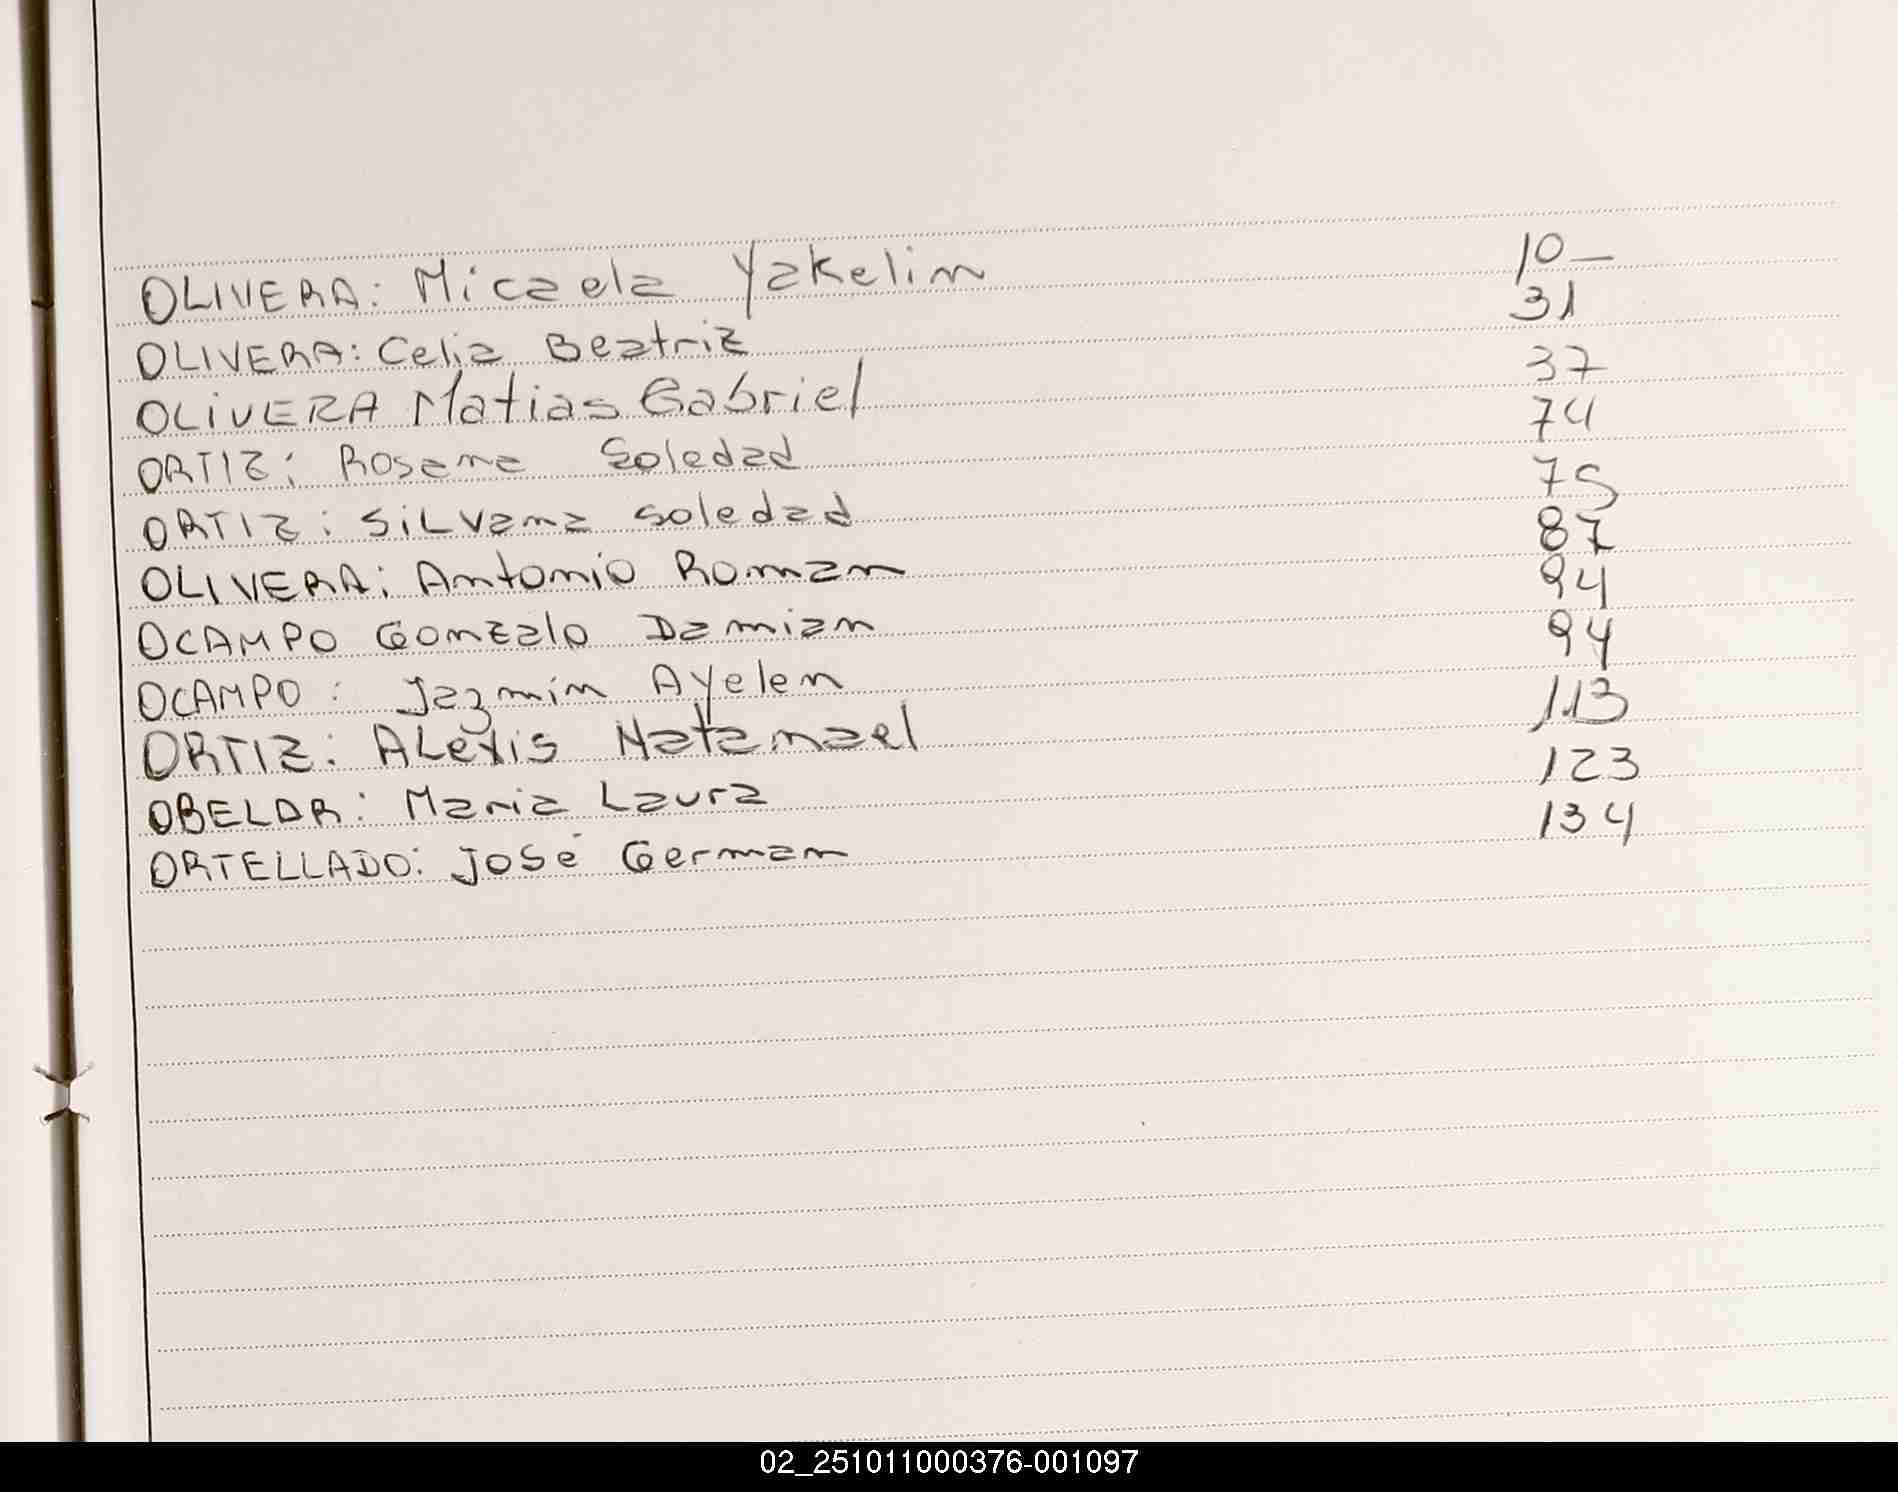 OLIVERA: Micaela Yakelin 10 —
OLIVERA: Celia Beatriz 31
OLIVERA Matias Gabriel 37
ORTIZ: Rosana Soledad 74
ORTIZ: SiLVana soledad 75
OLIVERA: Antonio Roman 87
OCAMPO Gonzalo Damian 94
OCAMPO: Jazmin Ayelen 94
ORTIZ: ALexis Natanael 113
OBELAR: Maria Laura 123
ORTELLADO: José German 134
02_251011000376-001097